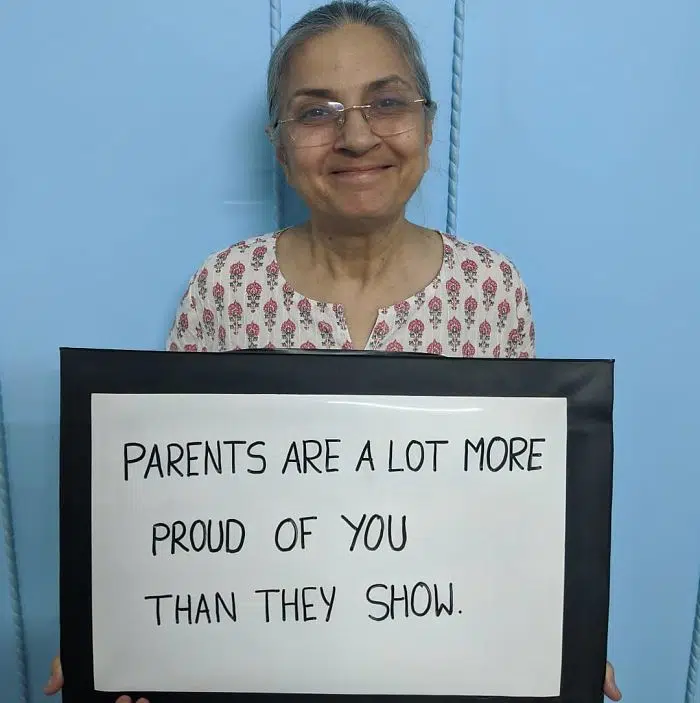 PARENTS ARE A LOT MORE
PROUD OF YOU
THAN THEY SHOW.